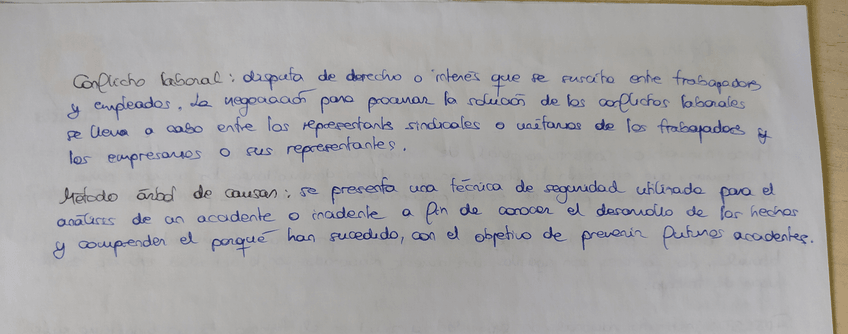 Conflicto laboral: disputa de derecho o interés que se suscita entre trabajadores
y empleados. La negociación para procurar la solución de los conflictos laborales
se lleva a cabo entre los representants sindicales o unitarios de los trabajadores y
los empresarios o sus representantes.
Método árbol de causas: se presenta una técnica de seguridad utilizada para el
análisis de un accidente o incidente a fin de conocer el desarrollo de los hechos
y comprender el porqué han sucedido, con el objetivo de prevenir futuros accidentes.